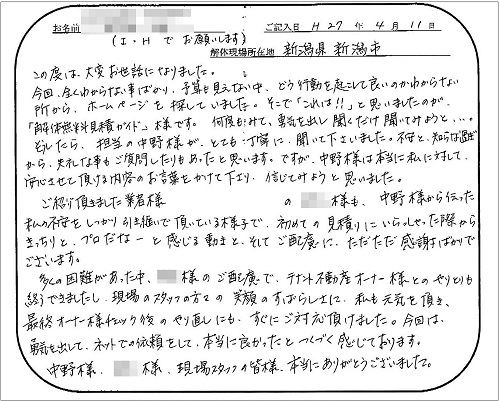 お名前
ご記入日 H 27 年 4 月 11 日
(I・Hでお願いします)
解体現場所在地 新潟県新潟市
この度は、大変お世話になりました。
今回、全くわからない事ばかり、予算も見えない中、どう行動を起こして良いのかわからない
所から、ホームページを探していました。そこで「これは!!」と思いましたのが、
「解体無料見積ガイド」様です。何度もみて、勇気を出し聞くだけ聞いてみようと…。
そしたら、担当の中野様が、とても丁寧に、聞いて下さいました。不安と、知らな
から、失礼な事もご質問したりもあったと思います。ですが、中野様は本当に私に対して、
安心させて頂ける内容のお言葉をかけて下さり、信じてみようと思いました。
ご紹介頂きました業者様 の 様も、中野様から伝った
私の不安をしっかり引き継いで頂いている様子で、初めての見積りにいらっしゃった際から
きっちりと、プロだなーと感じる動きと、そしてご配慮に、ただただ感謝ばかりで
ございます。
多くの困難があった中、 様のご配慮で、テナント不動産オーナー様とのやりとりも
終了できましたし、現場のスタッフの方々の笑顔のすばらしさに、私も元気を頂き、
最終オーナー様チェック後のやり直しにも、すぐにご対応頂けました。今回は、
勇気を出して、ネットでの依頼をして、本当に良かったとつくづく感じております。
中野様、 様、現場スタッフの皆様、本当にありがとうございました。